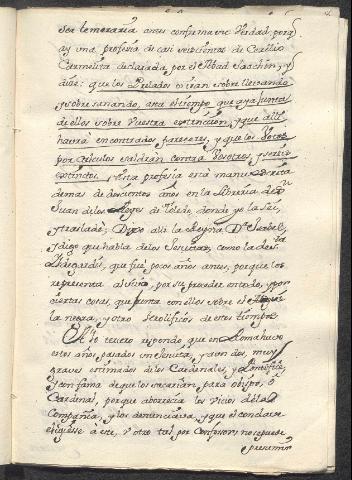 ser temeraria antes confirma ese Verdad, porq.
ay una profesia de casi seiscientos de Cirilio
Carmelita declarada por el Abad Joachin, y
dice: que los Prelados oiran sobre llevando
y sobre sanando, asta el tiempo que aya juntas
de ellos sobre Vuestra extincion, y que alli
havra encontrados pareseres, y que los Votos
por Circulos saldran contra Vosotros, y sereis
extintos. Esta profesia está manuscrita
demas de doscientos años en la libreria de Sn.
Juan de los Reyes de Toledo, donde yo la lei,
y traslade; Dejo alli la Reyna Da. Isabel,
y digo que habla de los Jesuitas, como la de Sta.
Ildegardis, que fue pocos años antes, porque los
representa al vivo, por su proceder entodo, y por
ciertas cosas, que junta con ellos sobre el
la negra, y otro de estos tiempos.
Alo tercero respondo, que en Roma huvo
estos años pasados un Jesuita, y aun dos, muy
graves estimados de los Cardenales, y Pontifice,
y con fama de que los sacarian para obispo, ó
Cardenal, porque aborrecia los vicios de la
Compañia, y los denunciava, y que el conclave
eligiesse à este, y otro tal por Confessor, no se puede
presumir